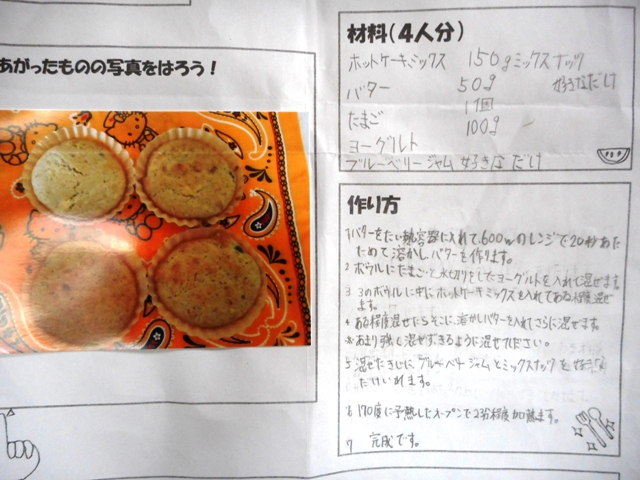 あがったものの写真をはろう！
材料（4人分）
ホットケーキミックス 150g ミックスナッツ
バター 50g 好きなだけ
たまご 1個
ヨーグルト 100g
ブルーベリージャム 好きなだけ
作り方
1 バターをたい熱容器に入れて、600wのレンジで20秒あた
ためて溶かしバターを作ります。
2 ボウルにたまごと水切りをしたヨーグルトを入れて混ぜます。
3 3のボウルに中にホットケーキミックスを入れてある程度混ぜ
ます。
4 ある程度混ぜたらそこに、溶かしバターを入れてさらに混ぜます。
※あまり強く混ぜすぎるように混ぜください。
5 混ぜたきじに ブルーベリージャムとミックスナッツを 好きな
だけいれます。
6 170度に予熱したオーブンで2分程度加熱ます。
7 完成です。